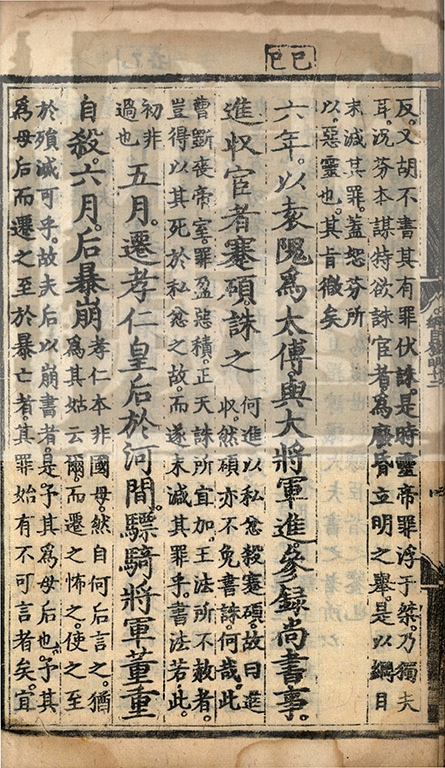 己巳
反。又胡不書其有罪伏誅。是時靈帝罪浮于桀。乃獨夫
耳。况芬本謀特欲誅宦者。為廢昏立明之舉。是以綱目
末減其罪。蓋恕芬所
以。惡靈也。其旨微矣
六年。以袁隗為太傅。與大將軍進參錄尚書事。
進收宦者蹇碩誅之
何進以私忿殺蹇碩。故曰進
收。然碩亦不免書誅。何哉。此
曹斷喪帝室。罪盈惡積。正天誅所宜加。王法所不赦者。
豈得以其死於私忿之故。而遂末減其罪乎。書法若此。
初非
過也
五月。遷孝仁皇后於河間。驃騎將軍董重
自殺。六月。后暴崩
孝仁本非國母。然自何后言之。猶
為其姑云爾。而遷之怖之。使之至
於殞滅可乎。故夫后以崩書者。是予其為母后也。予其
為母后而遷之至於暴亡者。其罪始有不可言者矣。宜